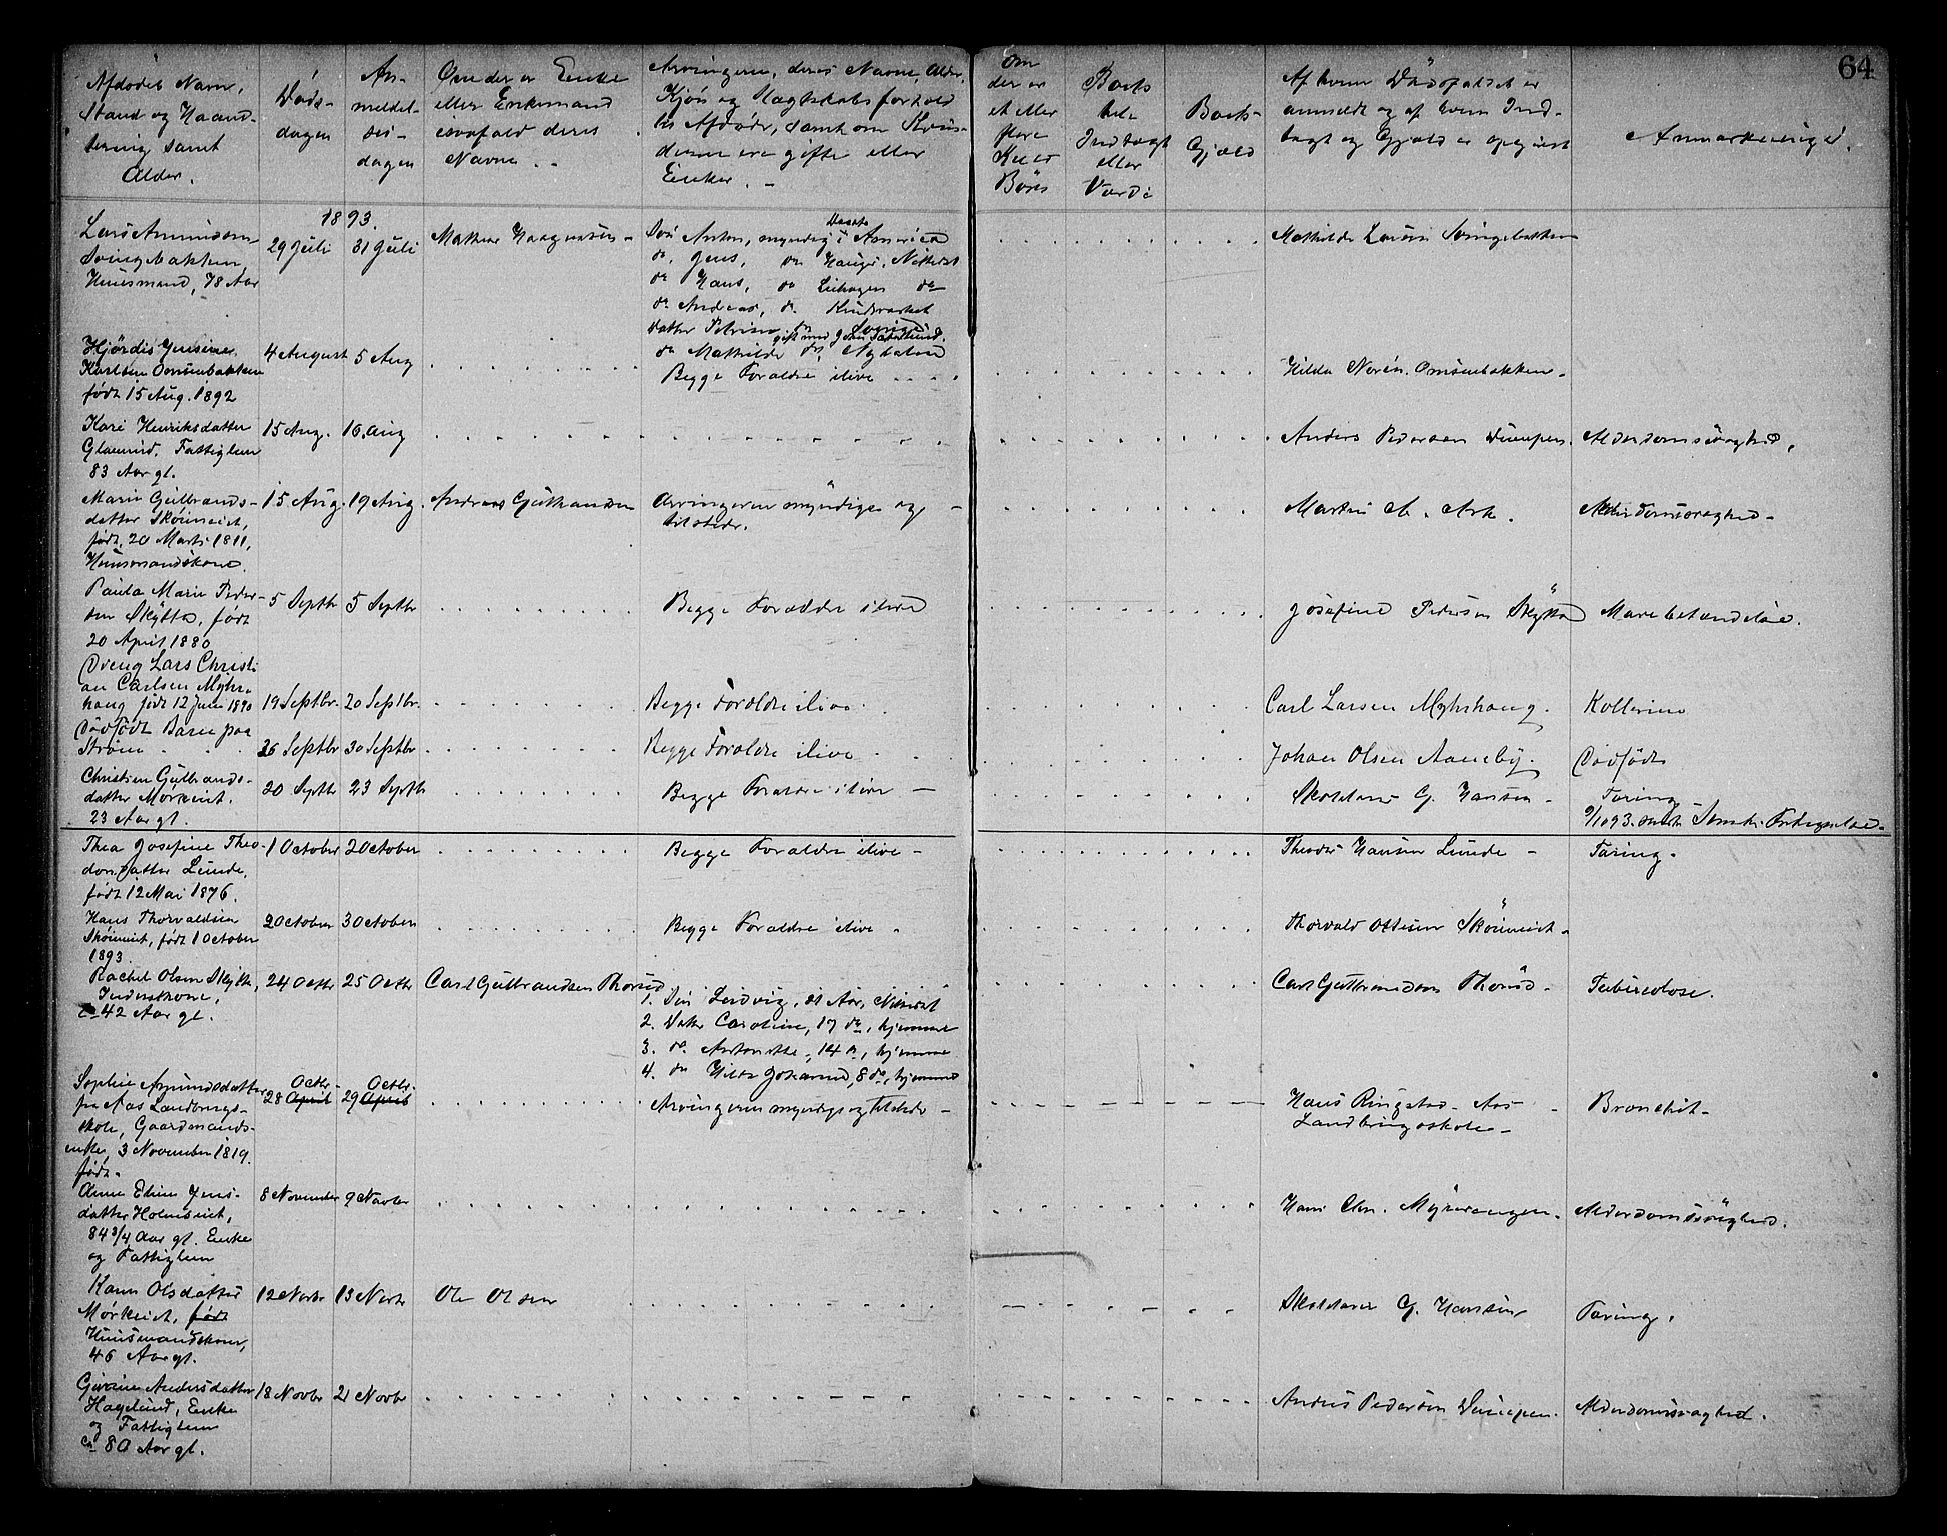 64
Afdødes Navn,
Stand og Haand-
tering samt
Alder.
Døds-
dagen
An-
meldel-
ses-
dagen
Om der er Enke
eller Enkemand
isåfald deres
Navne
Arvingerne, deres Navne, Alder,
Kjøn og Slægtskabsforhold
til Afdøde, samt om Kvin-
derne ere gifte eller
Enker.
Om
der er
et eller
flere
Kuld
Børn
Boets
hele
Indtægt
eller
Værdi
Boets
Gjæld
Af hvem Dødsfaldet er
anmeldt og af hvem Ind-
tægt og Gjæld er opgivet
Anmærkninger.
1893.
Lars Amundsen
Svingebakken
Huusmand, 78 Aar
29 Juli
31 Juli
Søn Anton, myndig i America
do Jens, do Hauger, Nittedal
do Hans, do do
do Andreas, do
Datter Petrine do Sverige
gift med John
do Mathilde do
Mathilde Larsen Svingebakken
Hjørdis Jensine
Karlsen Ormsenbakken
født 15 Aug. 1892
4 August
5 Aug
Begge Forældre ilive
Hilda Norén. Ormsenbakken
Kari Henriksdatter
Fattiglem
83 Aar gl.
15 Aug.
16. Aug
Anders Pedersen
Alderdomssvaghed.
Marie Gulbrands-
datter Skøieneiet,
født 20 Marts 1811,
Huusmandskone
15 Aug.
19 Aug.
Andreas Guthansen
Arvingerne myndige og
tilstede.
Martin A. Ask.
Alderdomssvaghed
Paula Marie Peder-
sen Skytta, født
20 April 1880
5 Septbr
5 Septbr
Begge Forældre ilive
Josefine Pedersen Skytta
Mavebetændelse.
Dreng Lars Christi-
an Carlsen Myhr-
haug født 12 Juni 1890
19 Septbr.
20 Septbr.
Begge Forældre ilive
Carl Larsen Myhrhaug.
Kollerine
Dødfødt Barn paa
Strøm
26 Septbr
30 Septbr
Begge Forældre ilive
Johan Olsen Aaneby.
Dødfødt
Christien Gulbrands-
datter Mørkeiet.
23 Aar gl.
20 Septbr
23 Septbr
Begge Forældre ilive
Skolelærer G. Hansen
Tæring
Thea Josefine Theo-
dorsdatter Lunde,
født 12 Mai 1876.
1 October
2 October
Begge Forældre ilive
Theodor Hansen Lunde
Tæring.
Hans Thorvaldsen
Skøieneiet, født 1 October
1893.
2 October
3 October
Begge Forældre ilive
Thorvald Ottesen Skøieneiet
Rachel Olsen Skytta,
Inderstkone,
ca 42 Aar gl.
24 Octbr
25 Octbr
Carl Gulbrandsen Thorud
1. Søn Ludvig, 21 Aar, Nittedal
2. Datter Caroline, 17 do, hjemme
3. do Antonette, 14 do, hjemme
4. do Hilda Johanne, 8 do, hjemme
Carl Gulbrandsen Thorud
Tuberculose.
Sophie Asmundsdatter
fra Aas Landbrugs-
skole, Gaardmands-
enke, 3 November 1819.
født
Octbr.
28 April
Octbr.
29 April
Arvingerne myndige og tilstede
Hans Ringstad Aas
Landbrugsskole
Bronchit
Anne Eline Jens-
datter Holmseiet,
84 3/4 Aar gl. Enke
og Fattiglem
8 November
9 Novbr
Hans Chr. Myrerengen.
Alderdomssvaghed.
Karen Olsdatter
Mørkeiet, født
Huusmandskone,
46 Aar gl.
12 Novbr
13 Novbr
Ole Olsen
Skolelærer G. Hansen
Tæring.
Andersdatter
Hagelund, Enke
og Fattiglem
ca 80 Aar gl.
18 Novbr
21 Novbr
Anders Pedersen
Alderdomssvaghed.